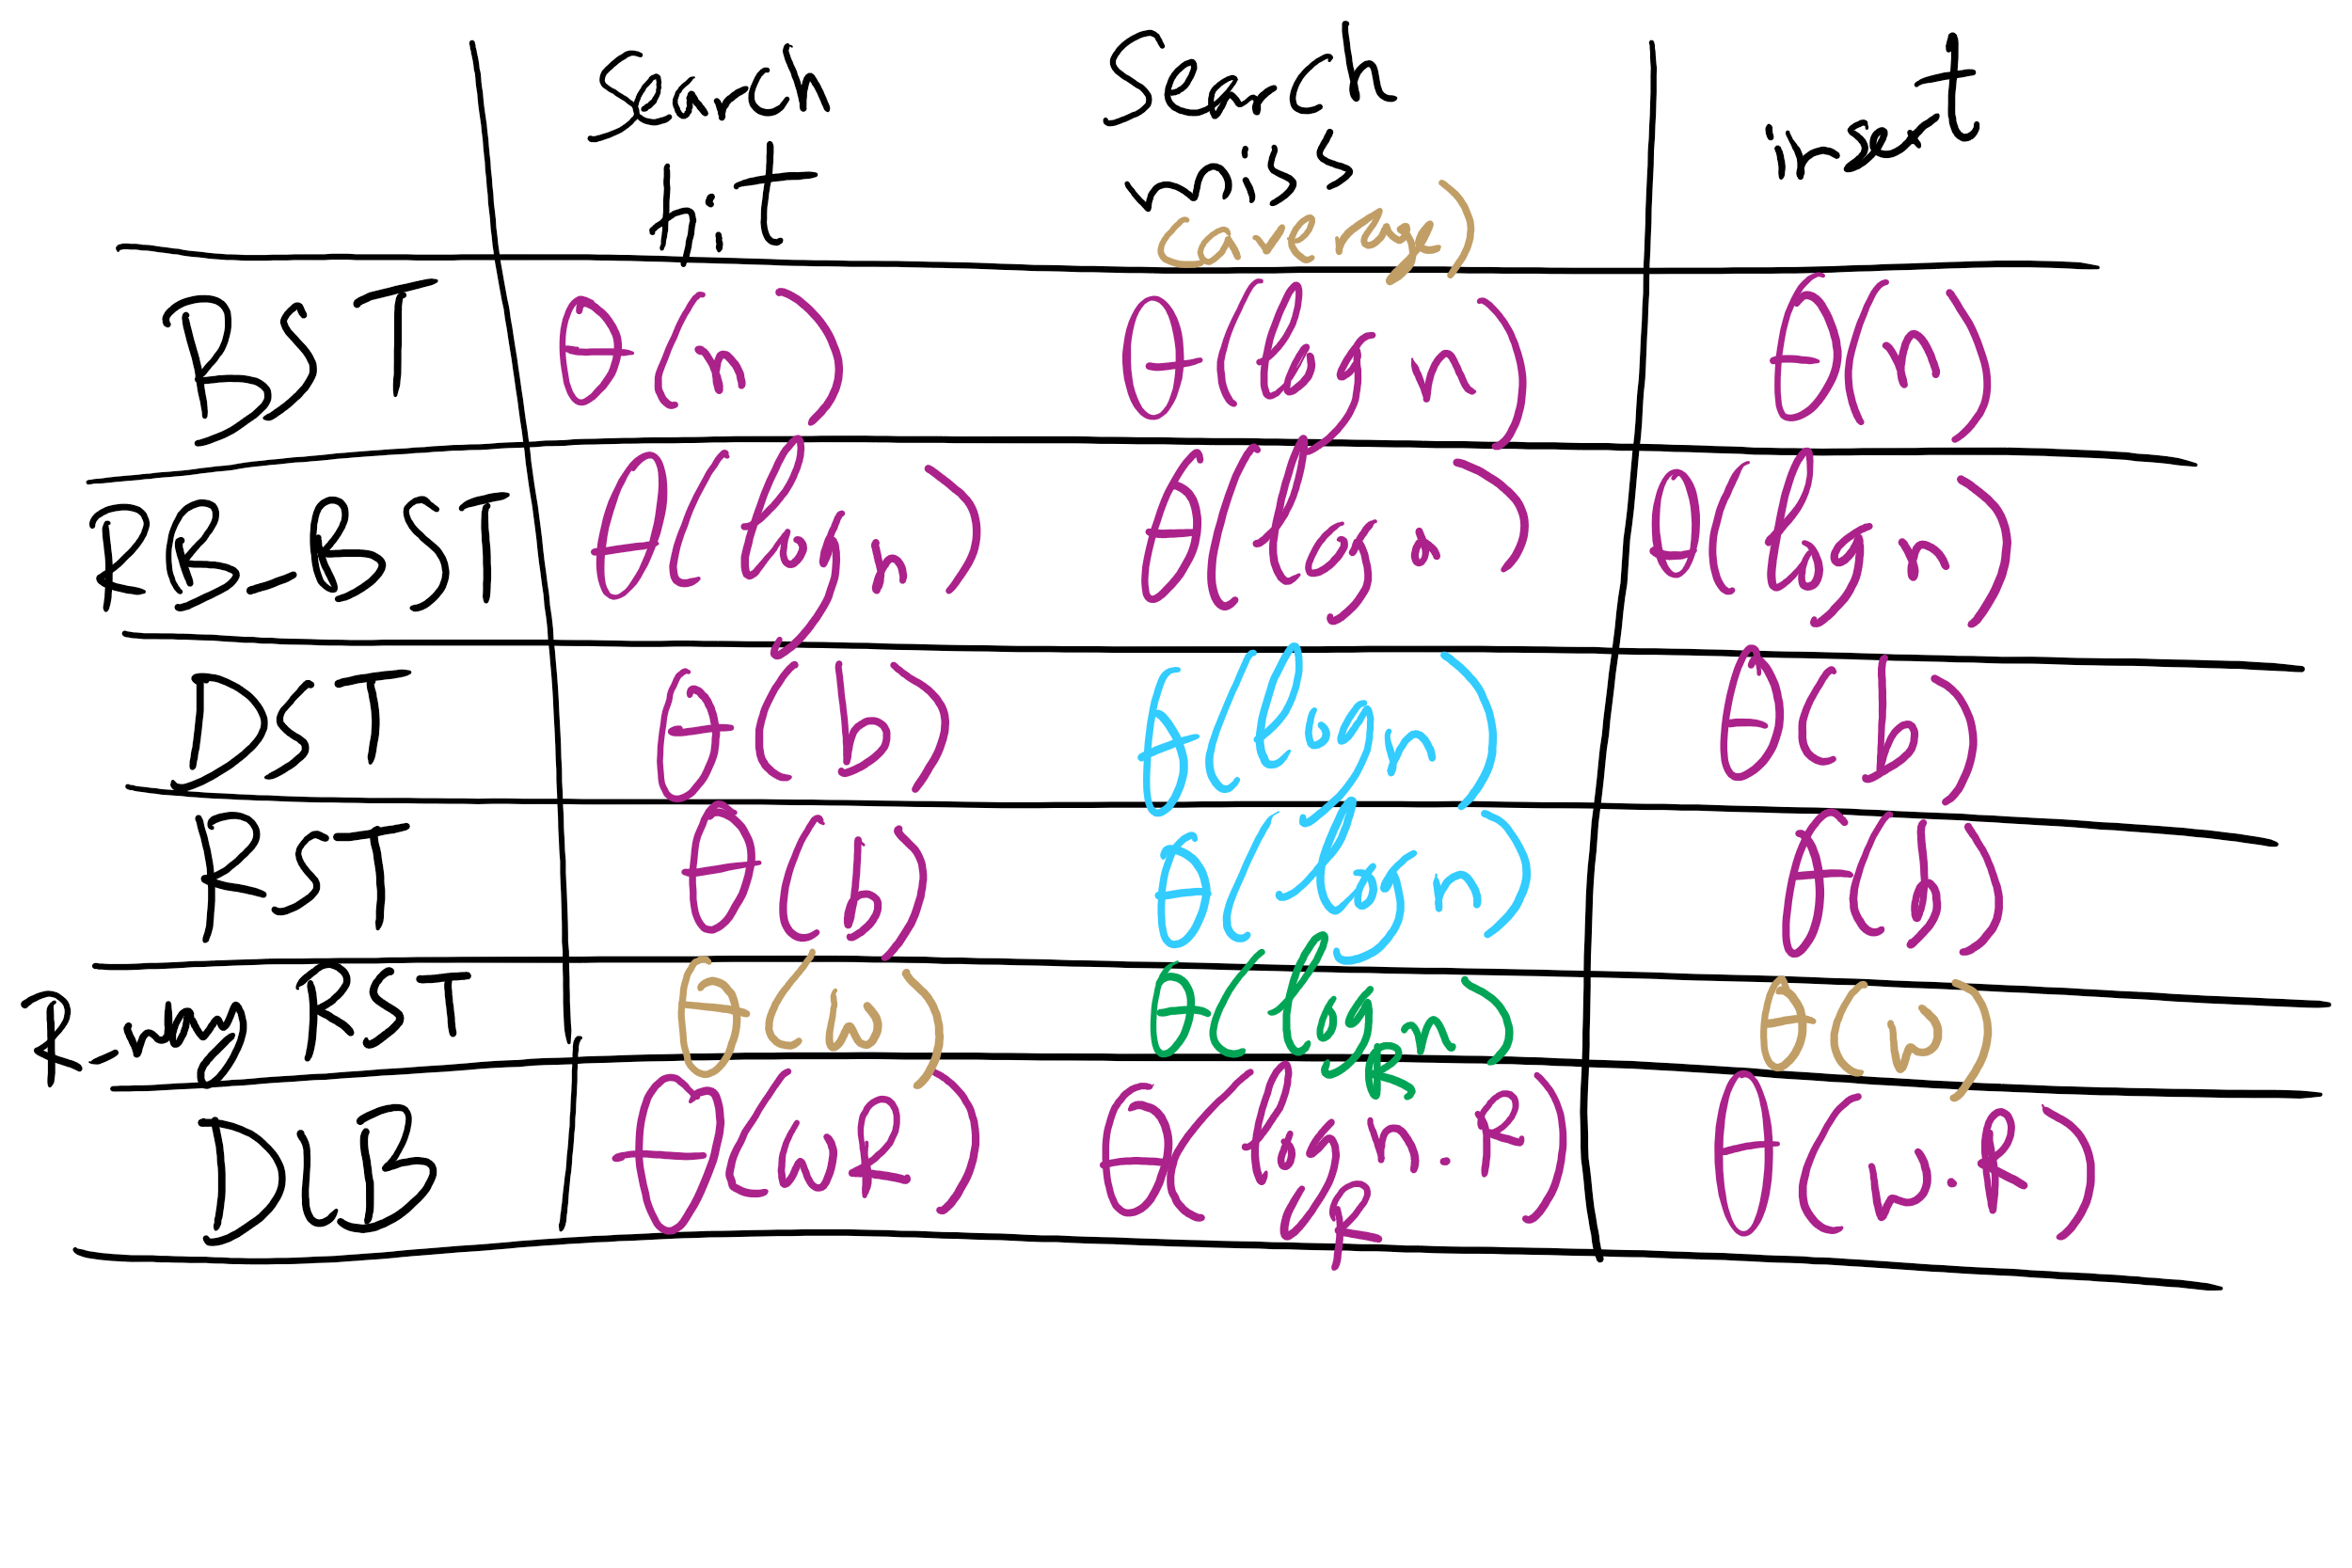 Search hit Search miss (average) insert
BST θ(n) θ(log n) θ(n)
RB_BST θ(log n) θ(log n) θ(log n)
DST θ(b) θ(log n) θ(b)
RST θ(b) θ(log n) θ(b)
R_way RST θ(w) θ(log_R n) θ(w)
DLB θ(wR) θ(log_R n . R) θ(w.R)